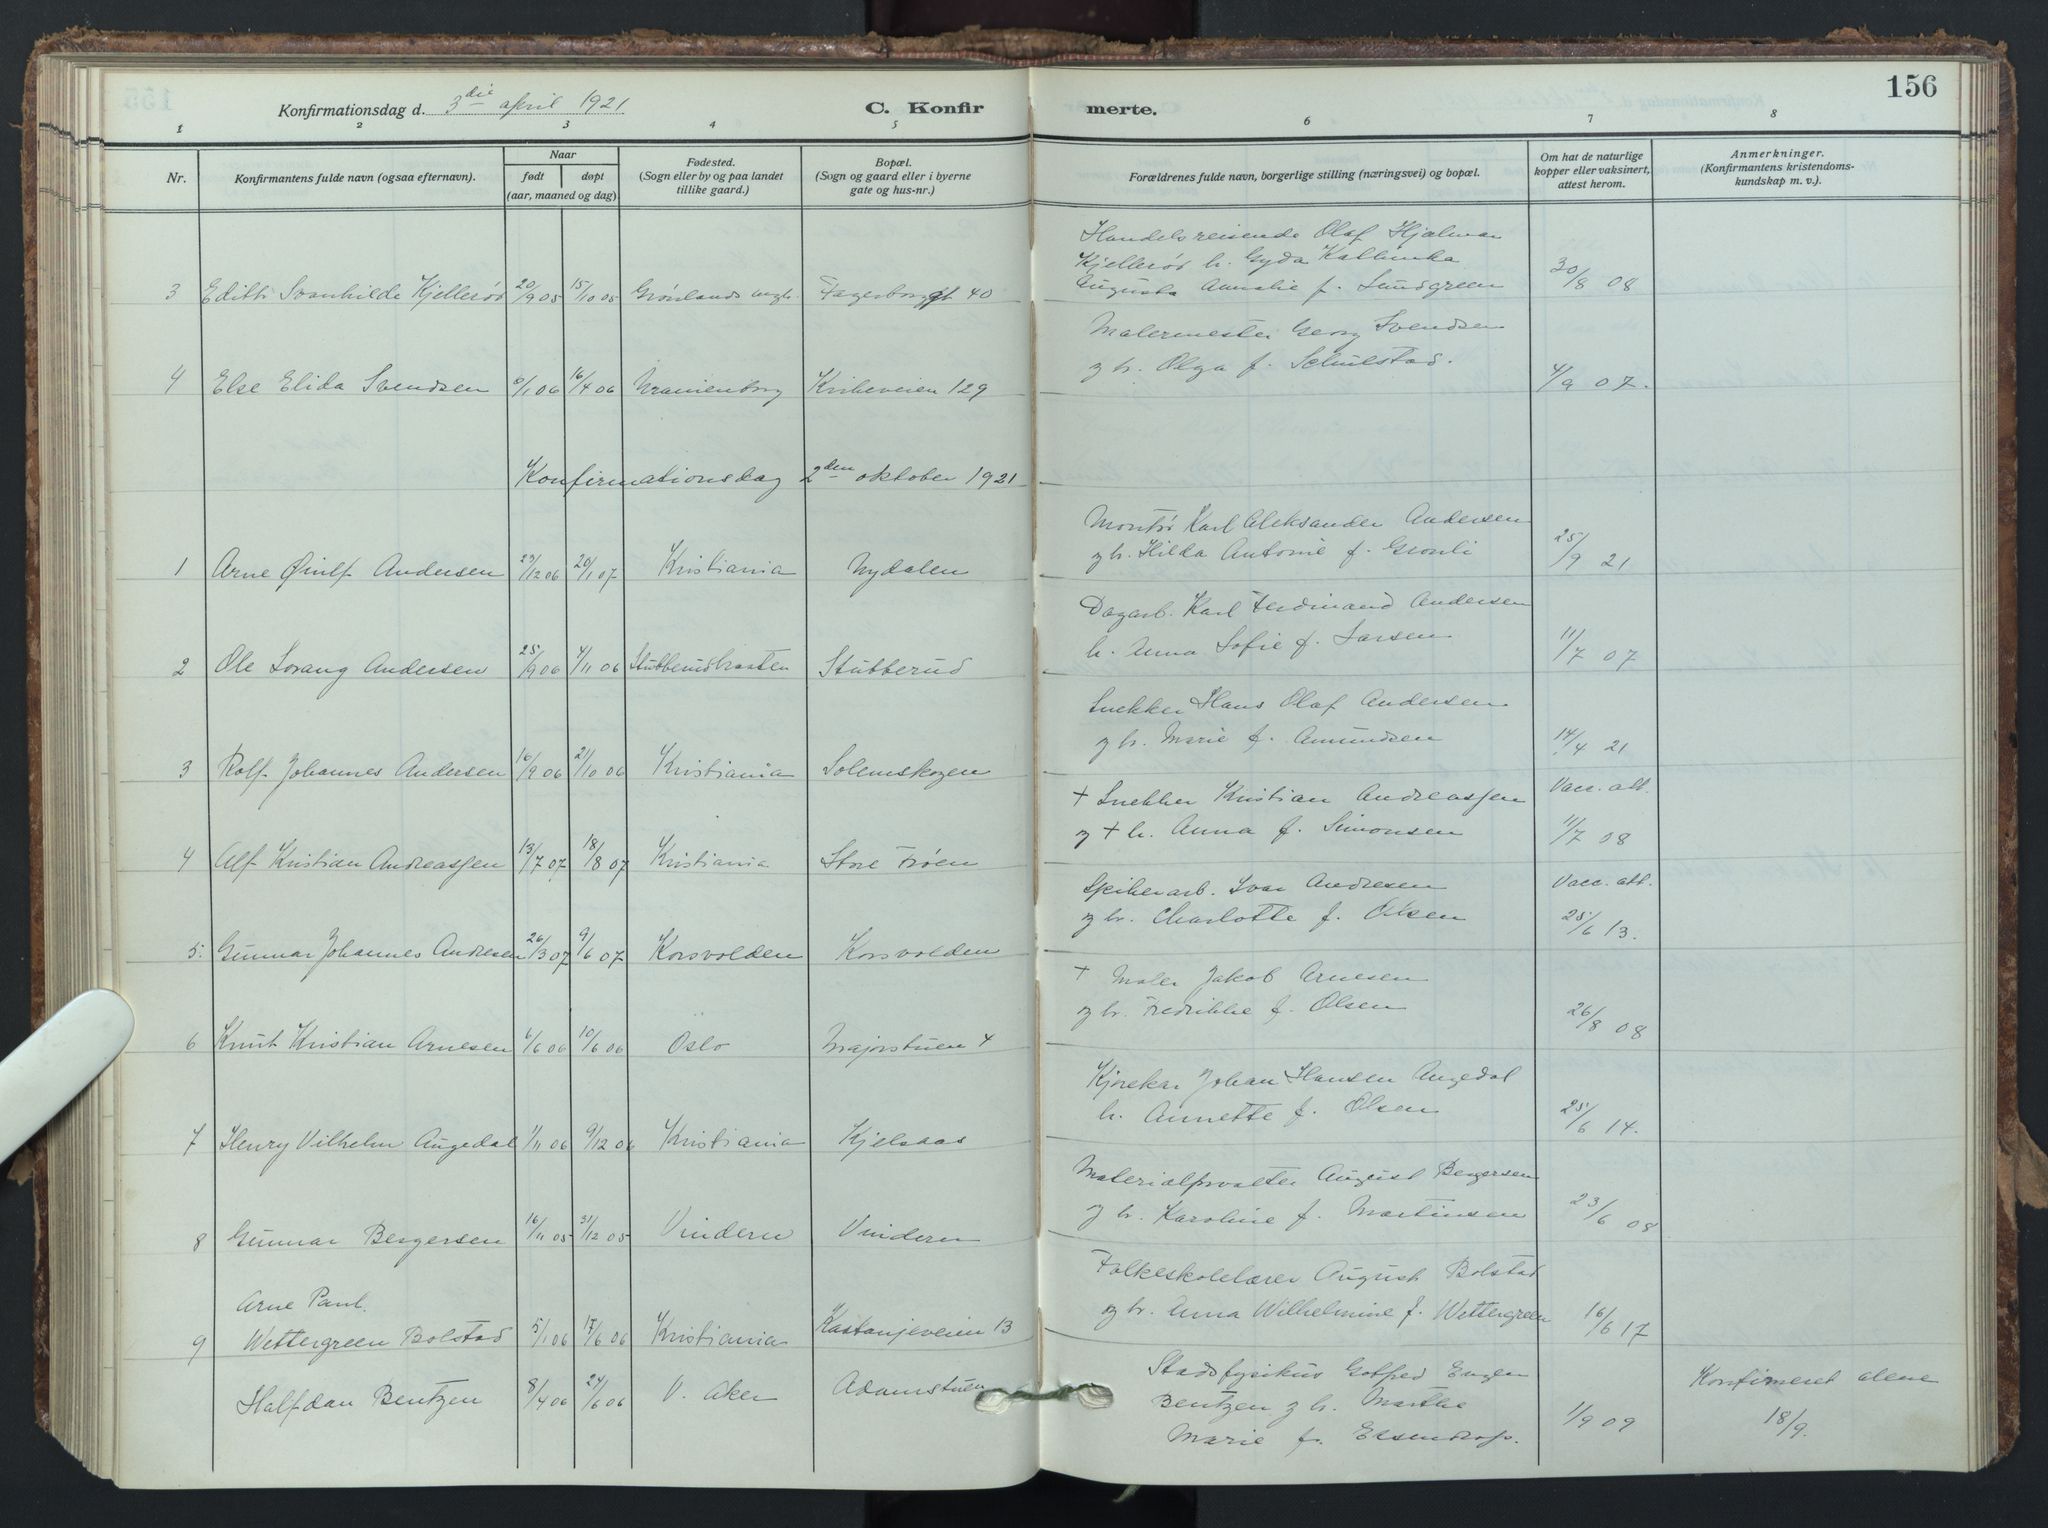 156
Konfirmationsdag d. 3die april 1921
C. Konfirmerte.
1 2 3 4 5 6 7 8
Nr.
Konfirmantens fulde navn (ogsaa efternavn).
Naar
født døpt
(aar, maaned og dag)
Fødested.
(Sogn eller by og paa landet
tillike gaard.)
Bopæl.
(Sogn og gaard eller i byerne
gate og hus-nr.)
Forældrenes fulde navn, borgerlige stilling (næringsvei) og bopæl.
Om hat de naturlige
kopper eller vaksinert,
attest herom.
Anmerkninger.
(Konfirmantens kristendoms-
kundskap m. v.).
Handelsreisende Olaf Hjalmar
Kjellerød h. Gyda Kathinka
3 Edith Svanhilde Kjellerød 20/9 05 15/10 05 Grønlands Fagerborggt 40 Augusta Amalie f. Lundgreen 30/8 08
Malermester Georg Svendsen
og h. Olga f. Schulstad.
4 Else Elida Svendsen 8/1 06 16/4 06 Uranienborg Kirkeveien 129 4/9 07.
Konfirmationsdag 2den oktober 1921
Montør Karl Aleksander Andersen
og h. Hilda Antonie f. Grønli 25/9 21
1 Arne Øiulf Andersen 27/12 06 20/1 07 Kristiania Nydalen
Dagarb. Karl Ferdinand Andersen
h. Anna Sofie f. Larsen 11/7 07
2 Ole Sorang Andersen 25/9 06 4/11 06 Stubberud Stubberud
Snekker Hans Olaf Andersen
og h. Marie f. Amundsen 14/4 21
3 Rolf Johannes Andersen 16/9 06 21/10 06 Kristiania Solemskogen
† Snekker Kristian Andreassen Vacc. att.
og † h. Anna f. Simonsen 11/7 08
4 Alf Kristian Andreassen 13/7 07 18/8 07 Kristiania Store Frøen
Spikerarb. Ivar Andresen Vacc. att.
og h. Charlotte f. Olsen 25/6 13.
5. Gunnar Johannes Andresen 26/3 07 9/6 07 Korsvolden Korsvolden
† Maler Jakob Arnesen
og h. Fredrikke f. Olsen 26/8 08
6 Knut Kristian Arnesen 6/6 06 10/6 06 Oslo Majorstuen 4
Kjørekar Johan Hansen Augedal
h. Annette f. Olsen 25/6 14.
7 Henry Vilhelm Augedal 1/11 06 9/12 06 Kristiania Kjelsaas
Materialforvalter August Bergersen
og h. Karoline f. Martinsen 23/6 08
8 Gunnar Bergersen 16/11 05 31/12 05 Vindern Vindern
Folkeskolelærer August Bolstad
og h. Anna Wilhelmine f. Wettergreen 16/6 17
Arne Paul
9 Wettergreen Bolstad 5/1 06 17/6 06 Kristiania Kastanjeveien 13
Stadsfysikus Gotfred Eugen
Halfdan Bentzen 8/4 06 24/6 06 V. Aker Adamstuen Bentzen og h. Marthe 1/9 09 Konfirmeret alene
Marie f. 18/9.